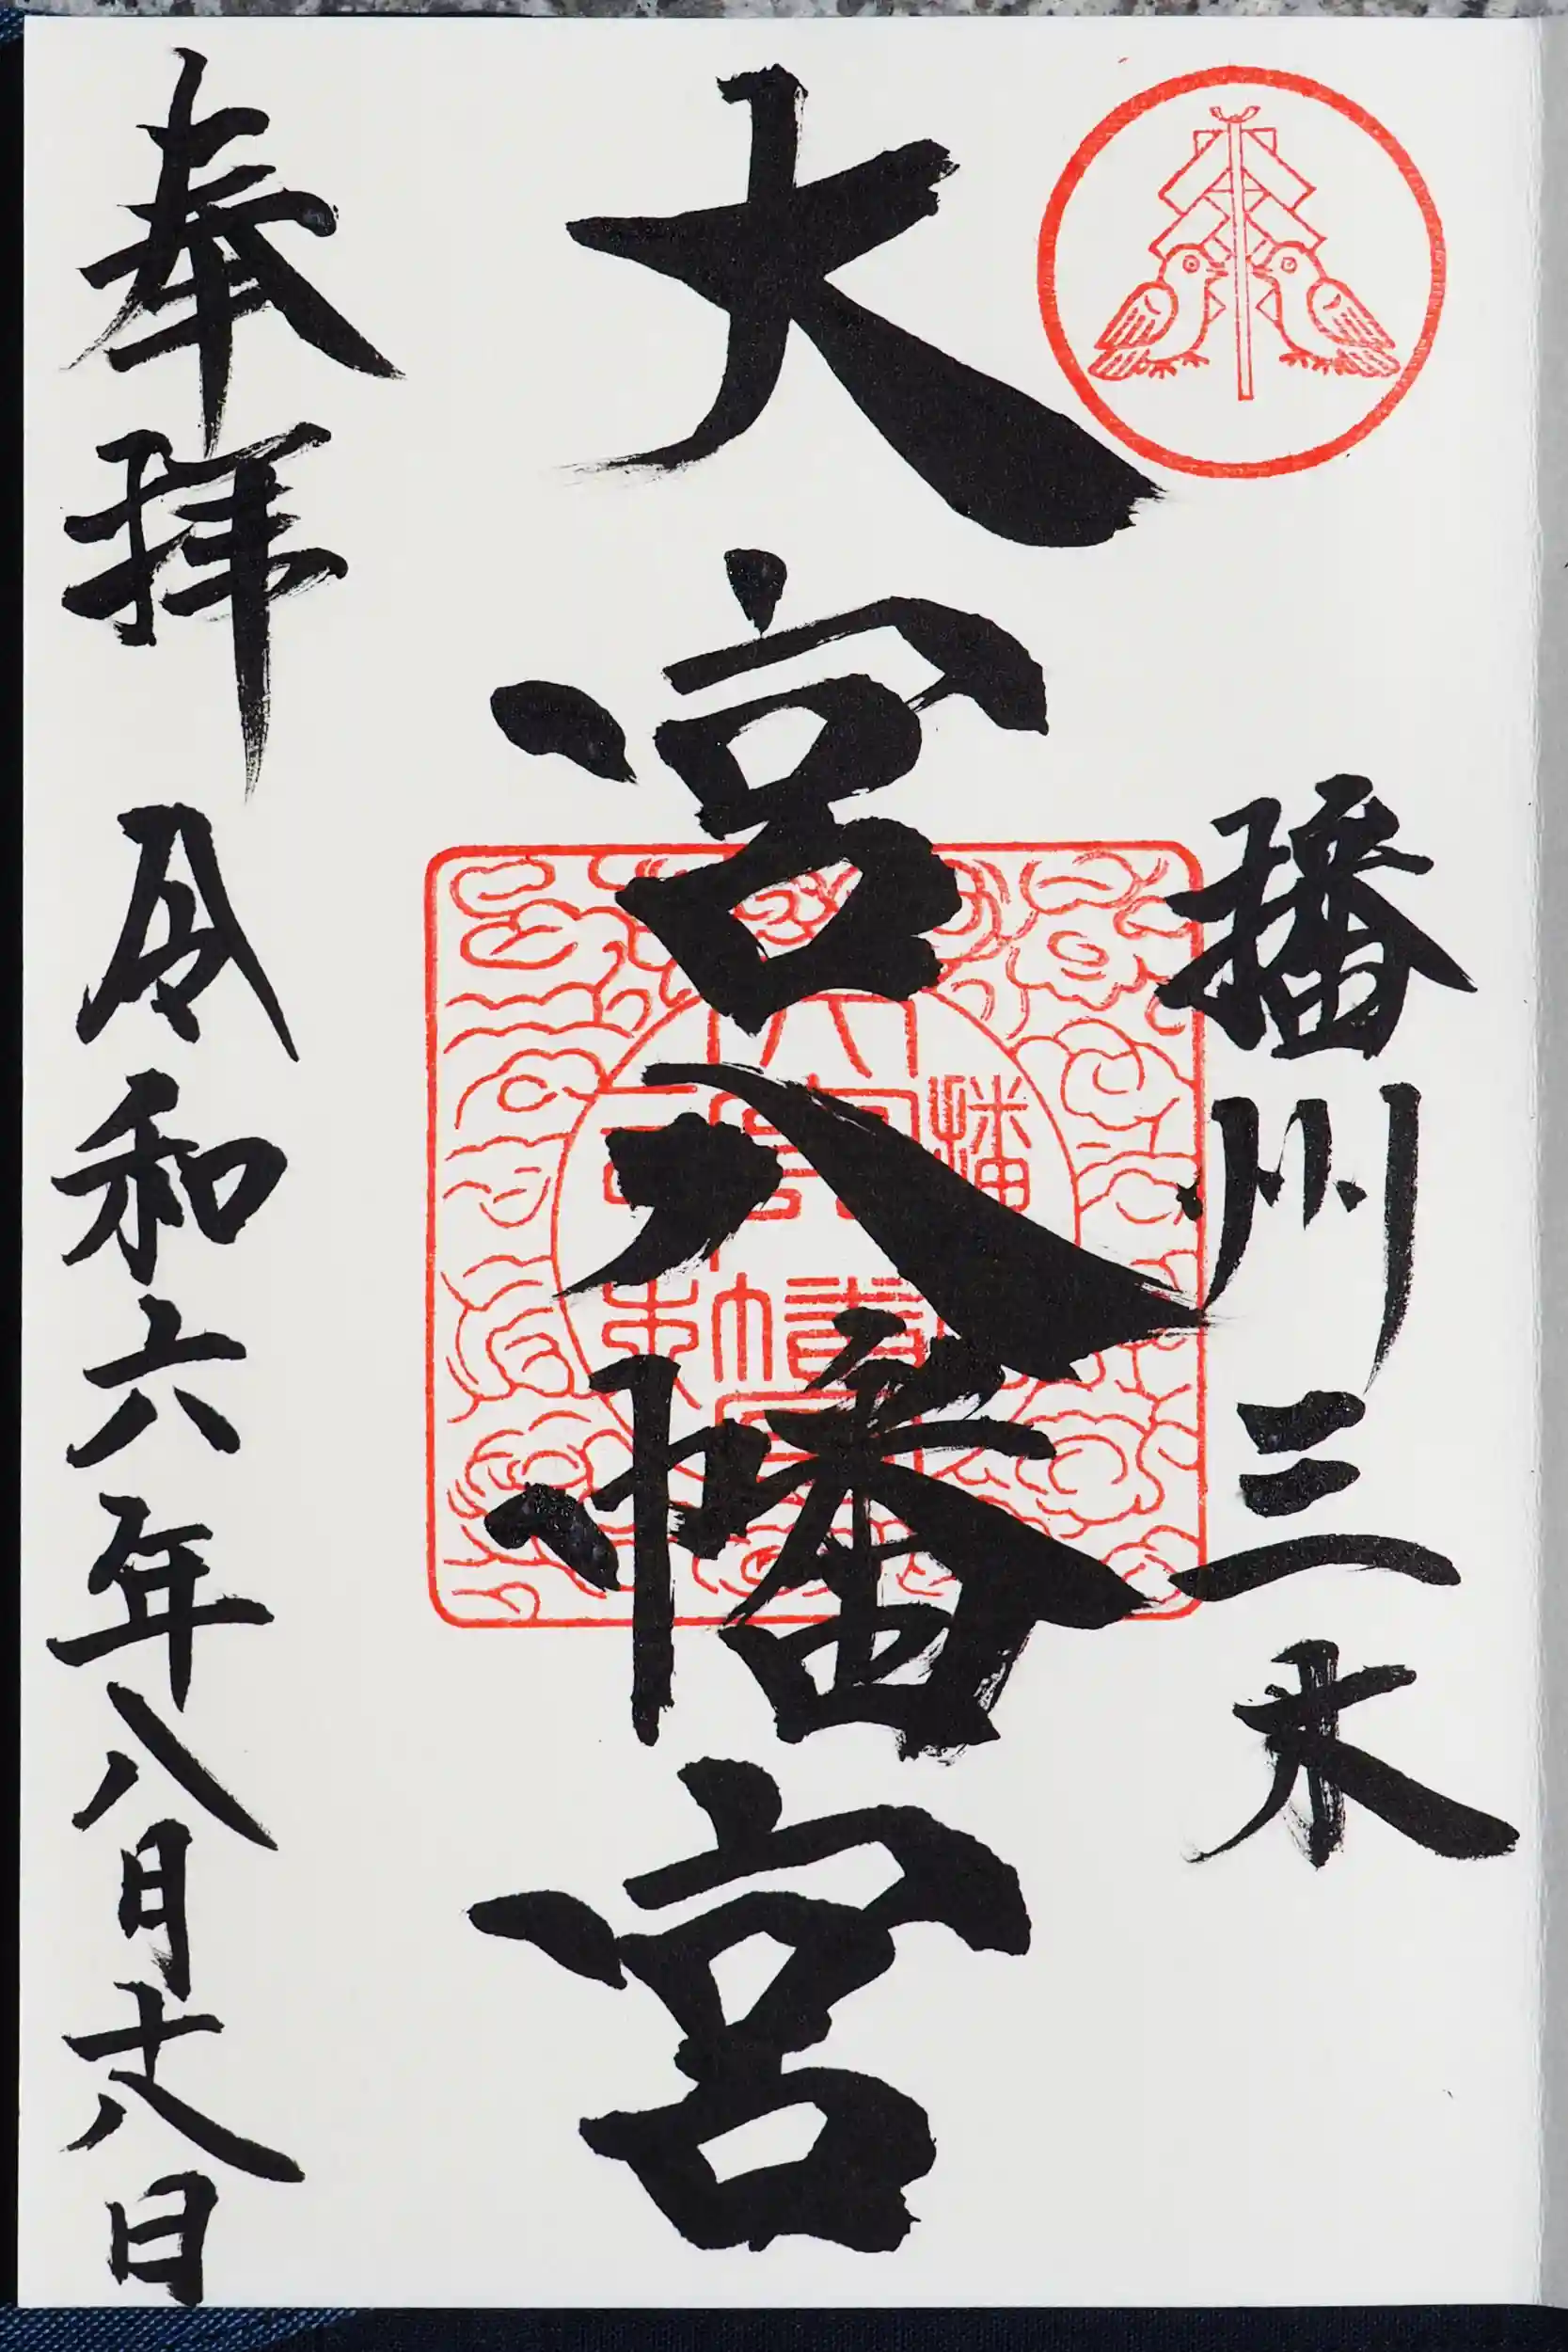 播州三木
大宮八幡宮
奉拝 令和六年八月十八日